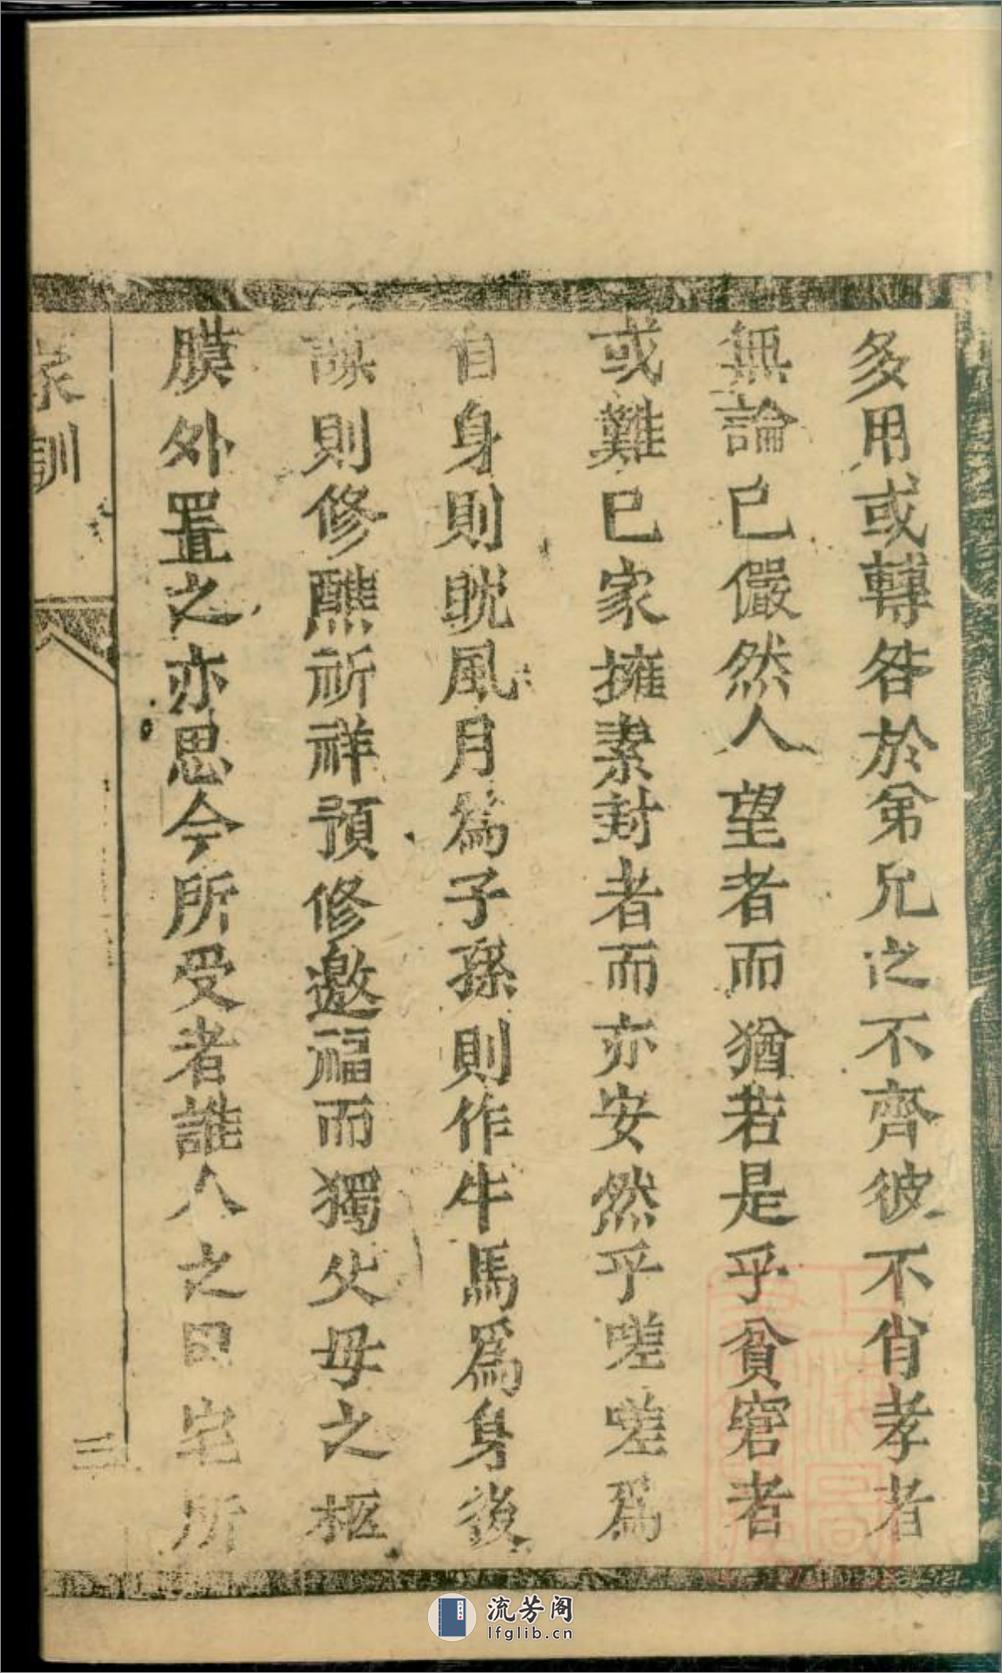 多用或轉咎於弟兄之不齊彼不肖孝者
無論已儼然人望者而猶若是乎貧窘者
或難已家擁素封者而亦安然乎嗟嗟爲
自身則眈風月爲子孫則作牛馬爲身後
謀則修醮祈祥預修邀福而獨父母之柩
膜外置之亦思今所受者誰人之田宅所
家訓
三
流芳阁
lfglib.cn